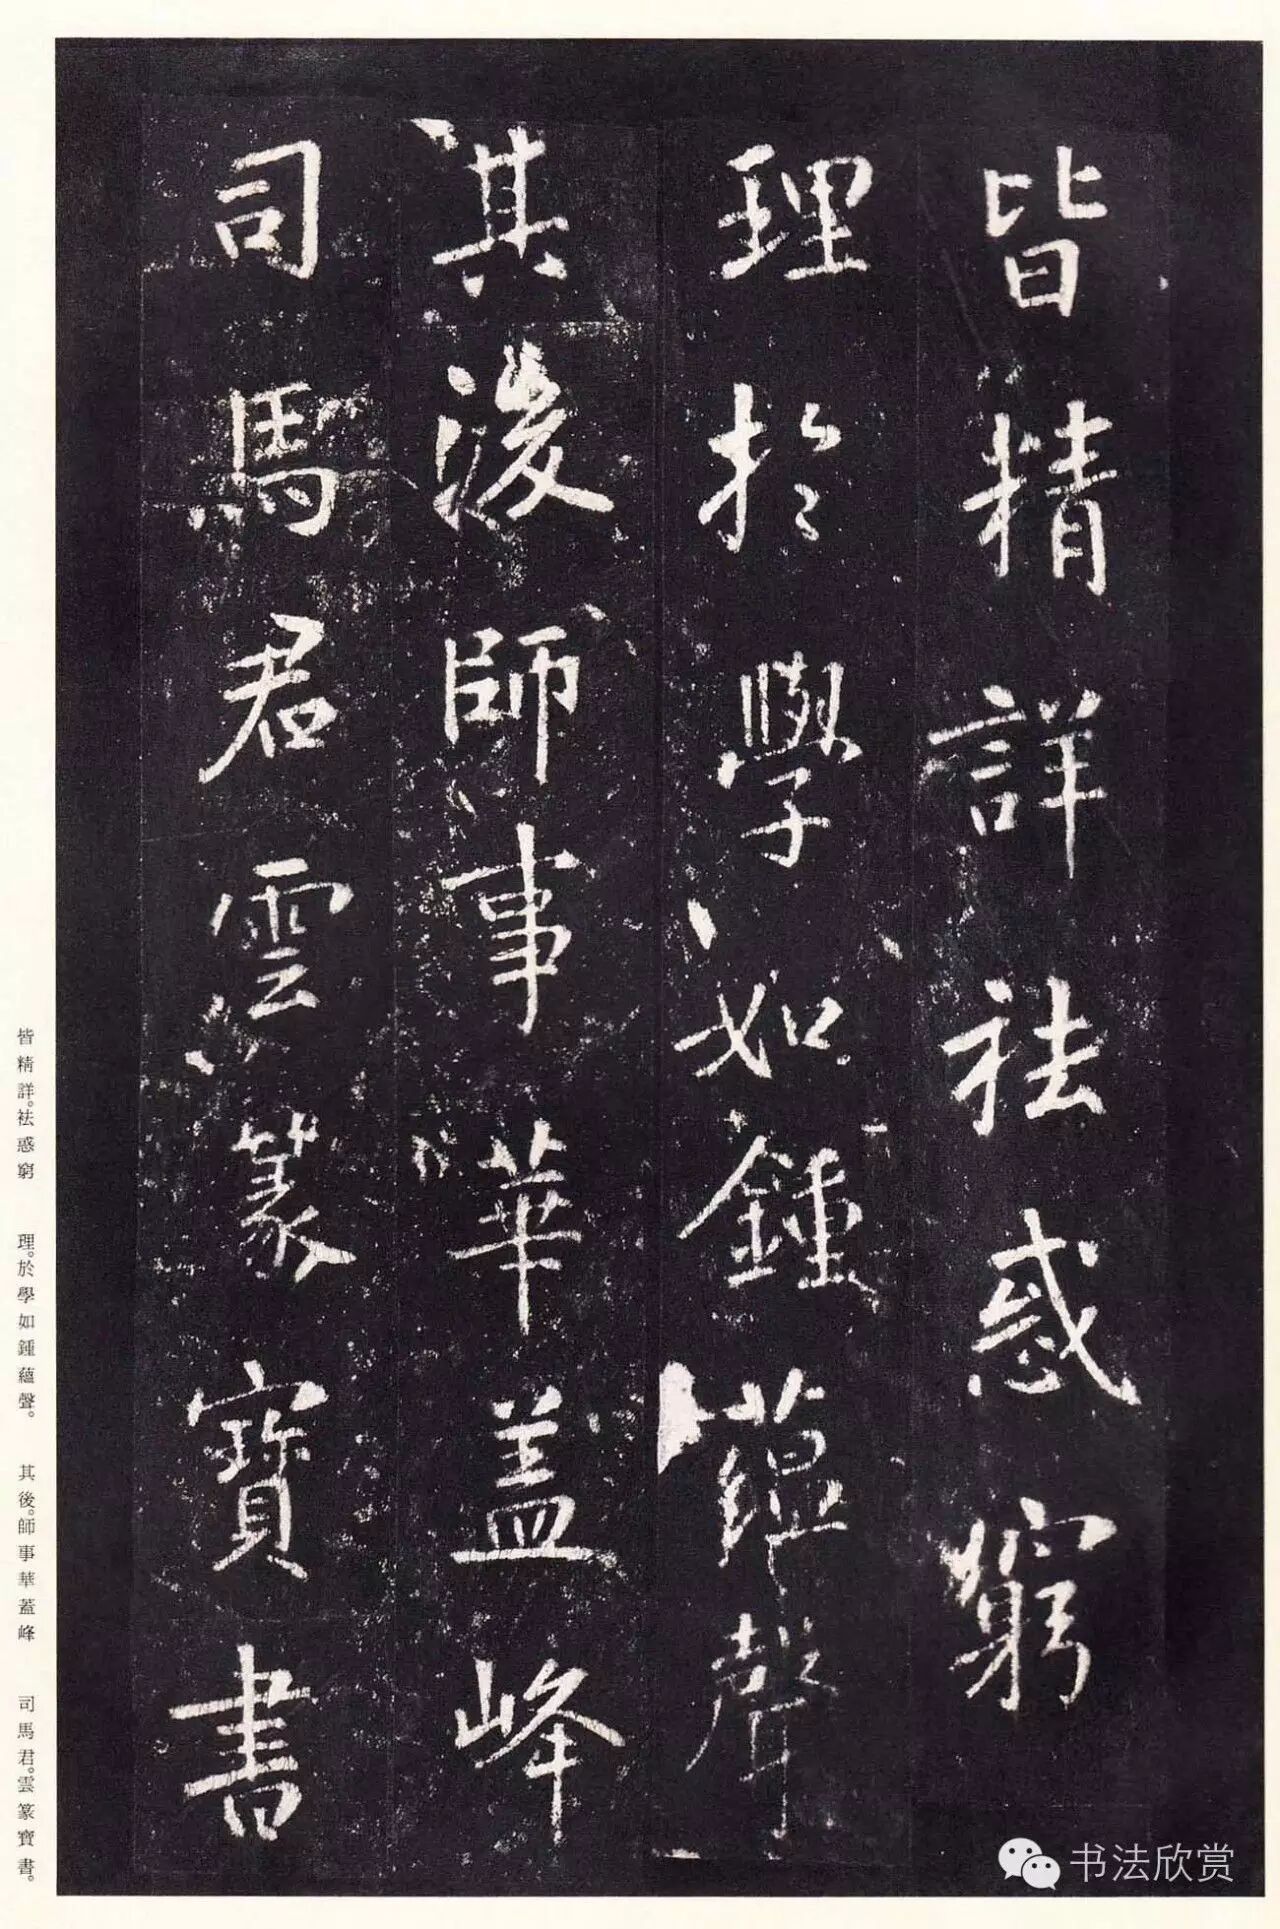 皆精詳祛惑窮
理於學如鍾蘊聲
其後師事華蓋峰
司馬君雲篆寶書
皆精詳。祛惑窮
理。於學如鍾蘊聲。
其後。師事華蓋峰
司馬君。雲篆寶書。
书法欣赏